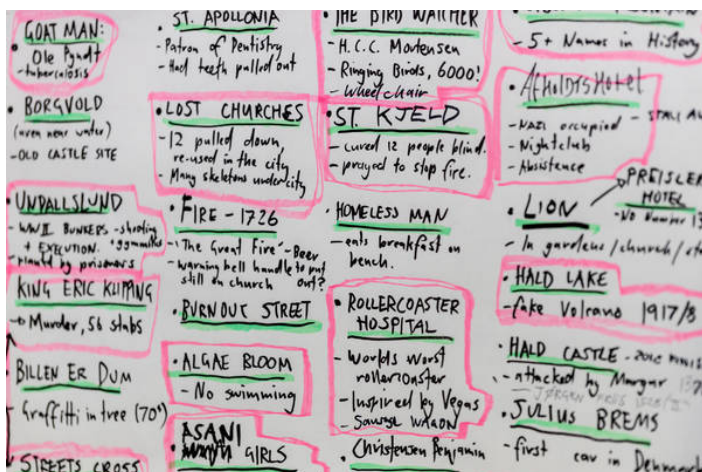 • GOAT MAN:
Ole Pyndt
- tuberculosis
• BORGVOLD
(area near water)
- OLD CASTLE SITE
• UNDALLSLUND
- WWII BUNKERS - shooting
+ EXECUTION.
- planted by prisoners
KING ERIC KLIPPING
Murder, 56 stabs
BILLEN ER DUM
- Graffitti in tree (70°)
STREETS CROSS
• ST. APOLLONIA
- Patron of Dentistry
- Had teeth pulled out
• LOST CHURCHES
- 12 pulled down,
re-used in the city
- Many skeletons under city
• FIRE - 1726
- The Great Fire - Beer
- warning bell handle to put
still on church out?
• BURNOUT STREET
• ALGAE BLOOM
- No swimming
ASANI
GIRLS
• THE BIRD WATCHER
- H.C.C. Mortensen
- Ringing Birds, 6000!
- Wheelchair
• ST. KJELD
- cured 12 people blind.
- prayed to stop fire.
HOMELESS MAN
- eats breakfast on
bench.
• ROLLERCOASTER
HOSPITAL
- Worlds worst
rollercoaster
- Inspired by Vegas
• Christensen Benjamin
- 5+ Names in History
- Nazi occupied
- Nightclub
PREISLER
HOTEL
- No Number 13
• LION
- In gardens / church /
• HALD LAKE
- fake Volcano 1917/8
• HALD CASTLE
- attacked by
• JULIUS BREMS
- first car in Denmark